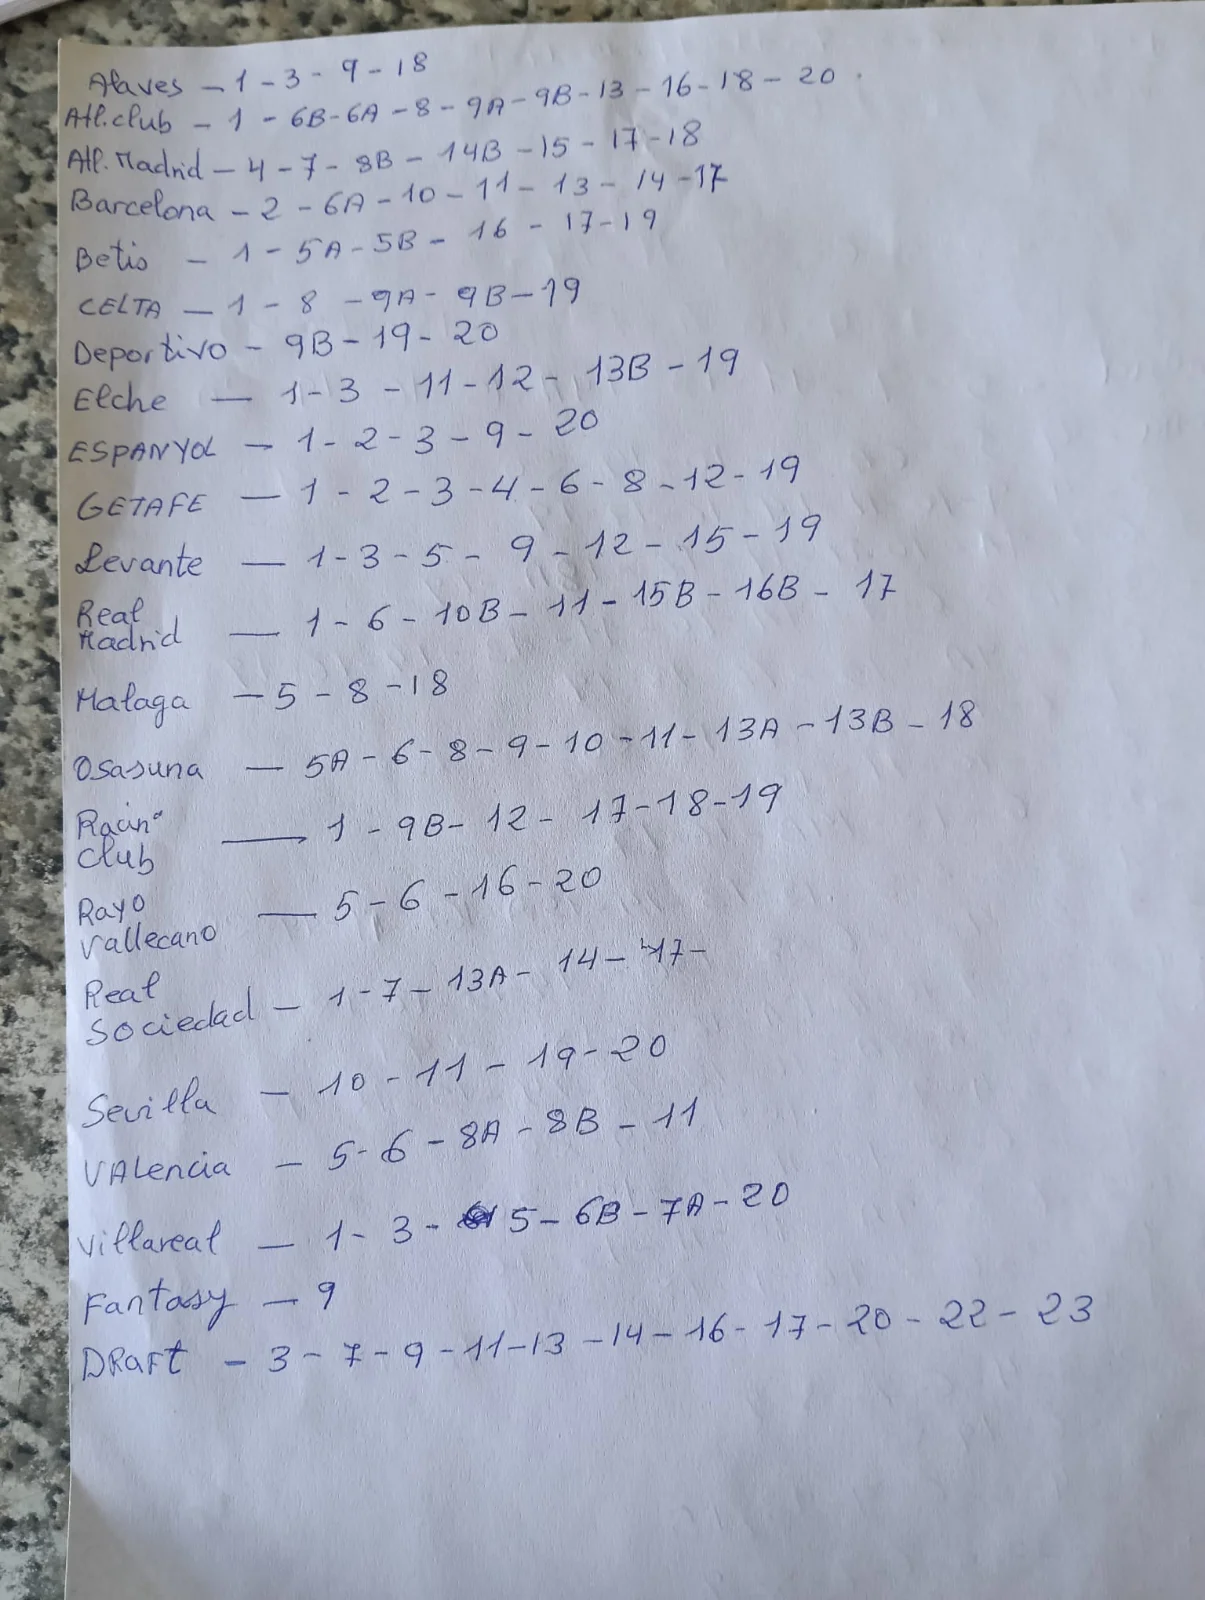 Alaves - 1 - 3 - 9 - 18
Atl. club - 1 - 6B - 6A - 8 - 9A - 9B - 13 - 16 - 18 - 20
Atl. Madrid - 4 - 7 - 8B - 14B - 15 - 17 - 18
Barcelona - 2 - 6A - 10 - 11 - 13 - 14 - 17
Betis - 1 - 5A - 5B - 16 - 17 - 19
CELTA - 1 - 8 - 9A - 9B - 19
Deportivo - 9B - 19 - 20
Elche - 1 - 3 - 11 - 12 - 13B - 19
ESPANYOL - 1 - 2 - 3 - 9 - 20
GETAFE - 1 - 2 - 3 - 4 - 6 - 8 - 12 - 19
Levante - 1 - 3 - 5 - 9 - 12 - 15 - 19
Real
Madrid - 1 - 6 - 10B - 11 - 15B - 16B - 17
Malaga - 5 - 8 - 18
Osasuna - 5A - 6 - 8 - 9 - 10 - 11 - 13A - 13B - 18
Club - 1 - 9B - 12 - 17 - 18 - 19
Rayo
Vallecano - 5 - 6 - 16 - 20
Real
Sociedad - 1 - 7 - 13A - 14 - 17 -
Sevilla - 10 - 11 - 19 - 20
VALencia - 5 - 6 - 8A - 8B - 11
Villareal - 1 - 3 - 5 - 6B - 7A - 20
Fantasy - 9
DRaFt - 3 - 7 - 9 - 11 - 13 - 14 - 16 - 17 - 20 - 22 - 23